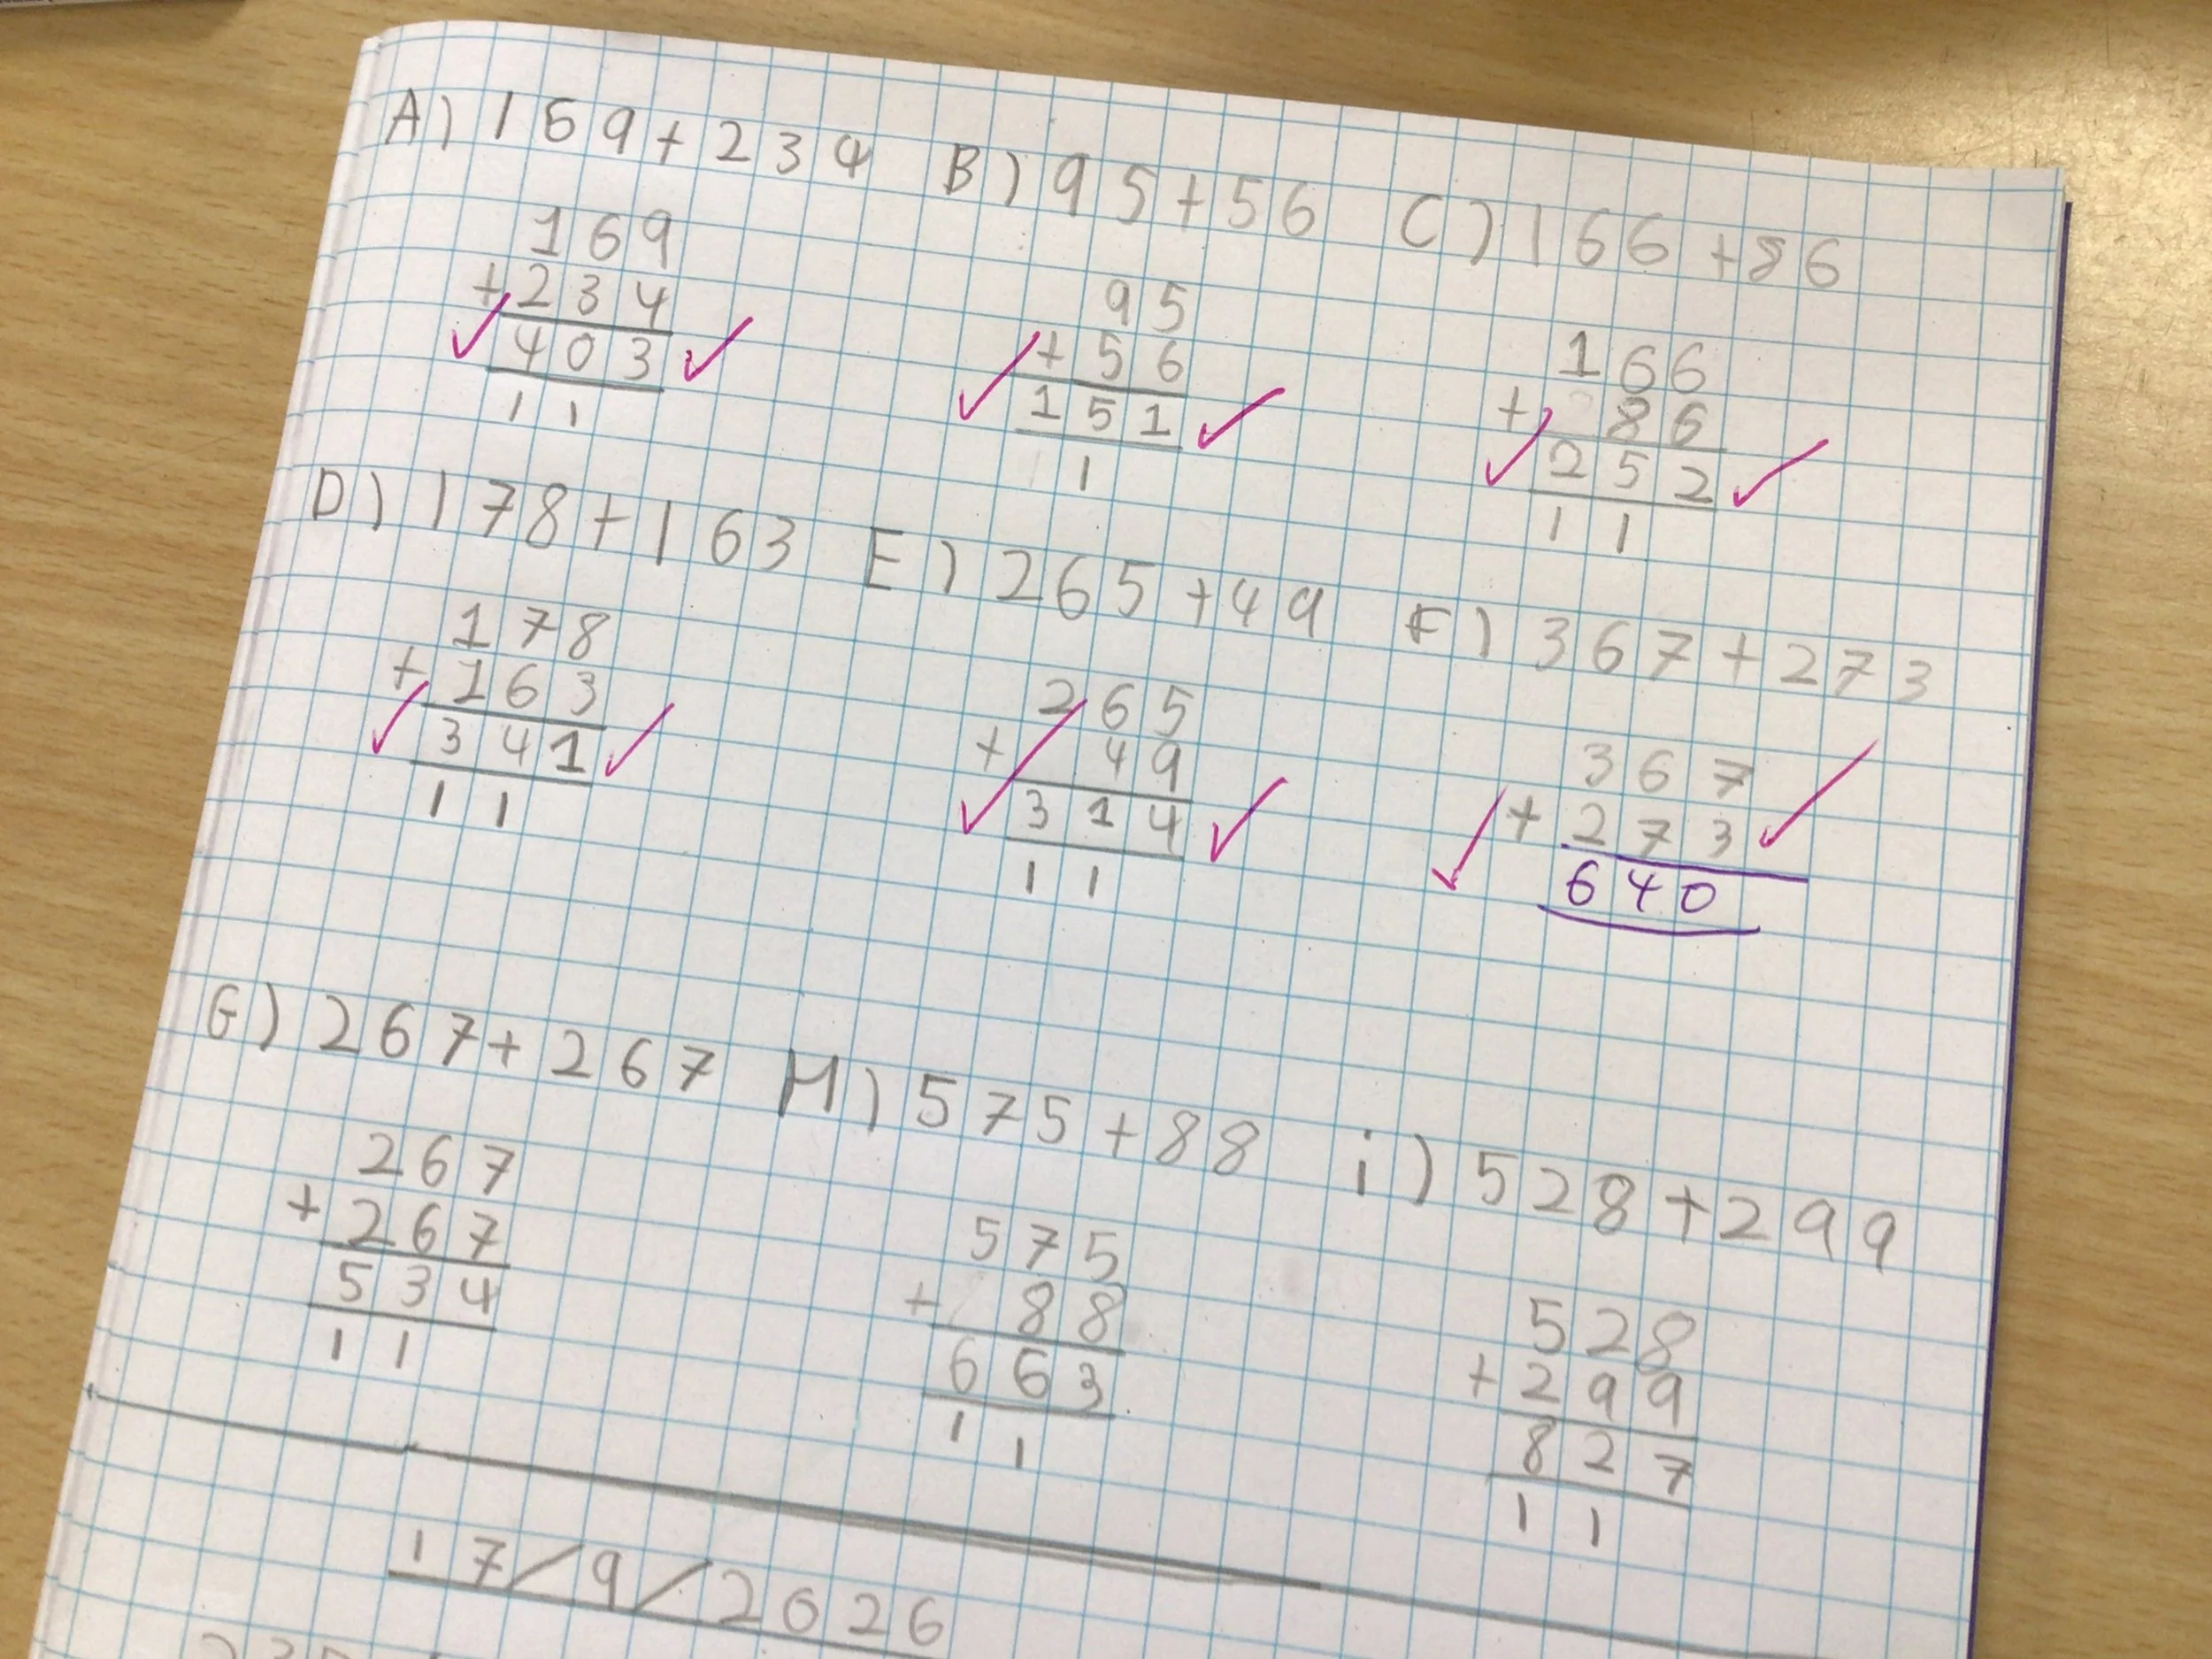 A) 169+234 B) 95+56 C) 166+86
169
+234
403
1 1
95
+ 56
151
1
166
+ 86
252
1 1
D) 178+163 E) 265+49 F) 367+273
178
+163
341
1 1
265
+ 49
314
1 1
367
+273
640
G) 267+267 H) 575+88 i) 528+299
267
+267
534
1 1
575
+ 88
663
1 1
528
+299
827
1 1
17/9/2026